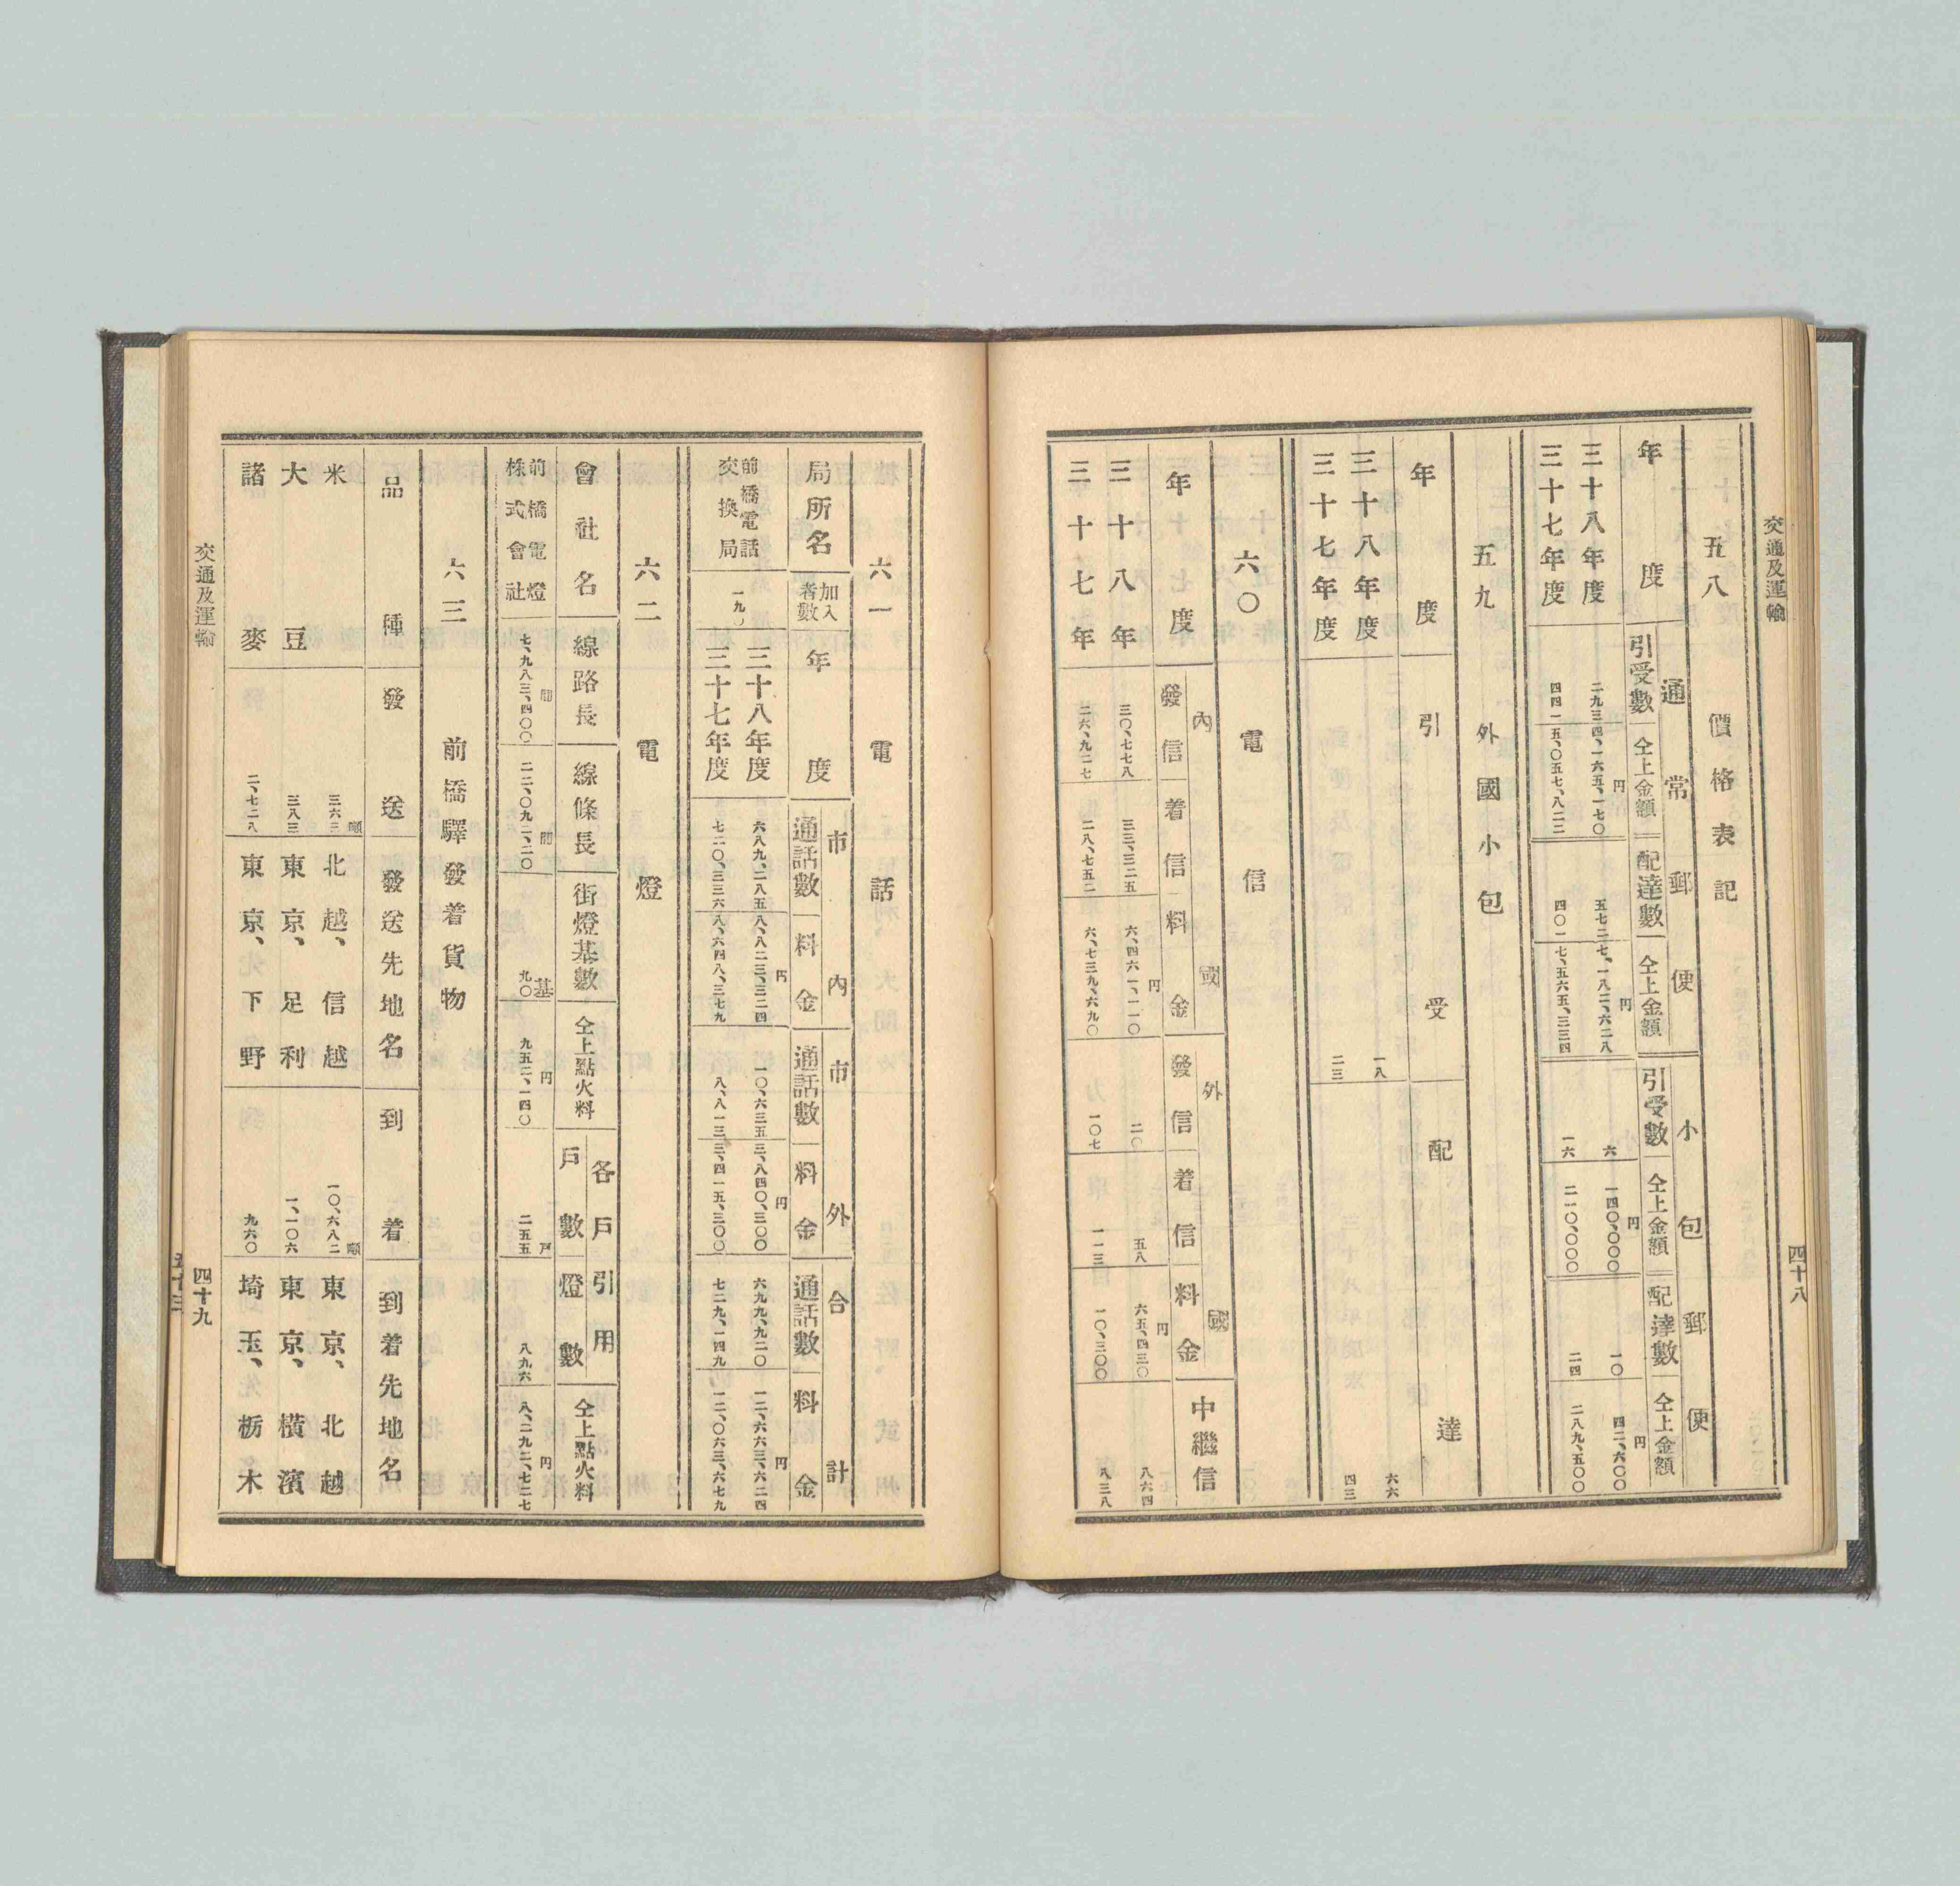 交通及運輸
四十八
五八 價格表記
年度
通常郵便
引受數
仝上金額
配達數
仝上金額
小包郵便
引受數
仝上金額
配達數
仝上金額
三十八年度 二九三 四、一六五、一七〇円 五七二 七、一八二、六二八円 六 一四〇、〇〇〇円 一〇 四二、六〇〇円
三十七年度 四四一 五、〇五七、八二二 四〇一 七、五六五、三三四 一六 二一〇、〇〇〇 二四 二八九、五〇〇
五九 外國小包
年度 引受 配達
三十八年度 一八 六六
三十七年度 二三 四三
六〇 電信
年度
內國
發信
着信
料金
外國
發信
着信
料金
中繼信
三十八年 三〇、七七八 三三、三二五 六、四六一、一一〇円 二〇 五八 六五、四三〇円 八六四
三十七年 二六、九二七 二八、七五二 六、七三九、六九〇 一〇七 一一三 一〇、三〇〇 八三八
六一 電話
局所名
加入者數
年度
市內
通話數
料金
市外
通話數
料金
合計
通話數
料金
前橋電話交換局
一九〇
三十八年度 六八九、二八五 八、八二三、三二四円 一〇、六三五 三、八四〇、三〇〇円 六九九、九二〇 一二、六六三、六二四円
三十七年度 七二〇、三三六 八、六四八、三七九 八、八一三 三、四一五、三〇〇 七二九、一四九 一二、〇六三、六七九
六二 電燈
會社名
線路長
線條長
街燈基數
仝上點火料
各戶引用
戶數
燈數
仝上點火料
前橋電燈株式會社
七、九八三、四〇〇間 二二、〇九二、二〇間 九〇基 九五二、一四〇円 二五五戶 八九六 八、二九二、七二七円
六三 前橋驛發着貨物
品種 發送 發送先地名 到着 到着先地名
米 三六三噸 北越、信越 一〇、六八二噸 東京、北越
大豆 三八三 東京、足利 一、一〇六 東京、橫濱
諸麥 二、七二八 東京、下野 九六〇 埼玉、栃木
交通及運輸
四十九